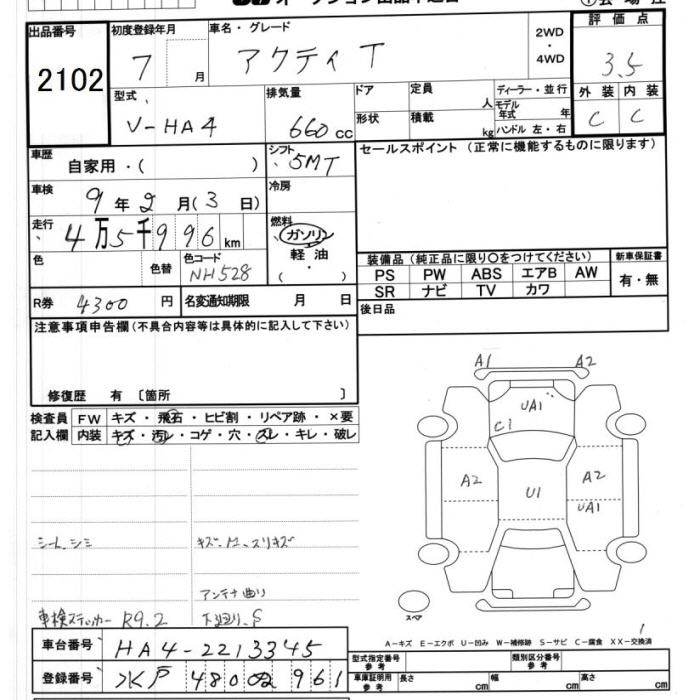 出品番号 初度登録年月 車名・グレード 2WD ・ 4WD 評価点
2102 7 月 アクティ T 3.5
型式 排気量 ドア 定員 人 ディーラー・並行 外装 内装
V-HA4 660 cc 形状 積載 kg モデル年式 年 C C
ハンドル 左・右
車歴 自家用・( ) シフト 5MT セールスポイント (正常に機能するものに限ります)
車検 9年2月(3日) 冷房
走行 4万5千996km 燃料 ガソリン
軽油
・
( )
色 色替 色コード NH528
装備品 (純正品に限り○をつけてください) 新車保証書
PS PW ABS エアB AW 有・無
SR ナビ TV カワ
R券 4300 円 名変通知期限 月 日 後日品
注意事項申告欄(不具合内容等は具体的に記入して下さい)
修復歴 有 〔箇所 〕
検査員 FW キズ・飛石・ヒビ割・リペア跡・×要
記入欄 内装 キズ・汚レ・コゲ・穴・スレ・キレ・破レ
A1 A2
UA1
C1
A2 U1 A2
UA1
シート、シミ
アンテナ曲り
車検ステッカー R9.2 下廻り、S
スペア
1
A−キズ E−エクボ U−凹み W−補修跡 S−サビ C−腐食 XX−交換済
車台番号 HA4-2213345
登録番号 水戸 480 961
型式指定番号 参考 類別区分番号 参考
車庫証明用 参考 長さ cm 幅 cm 高さ cm